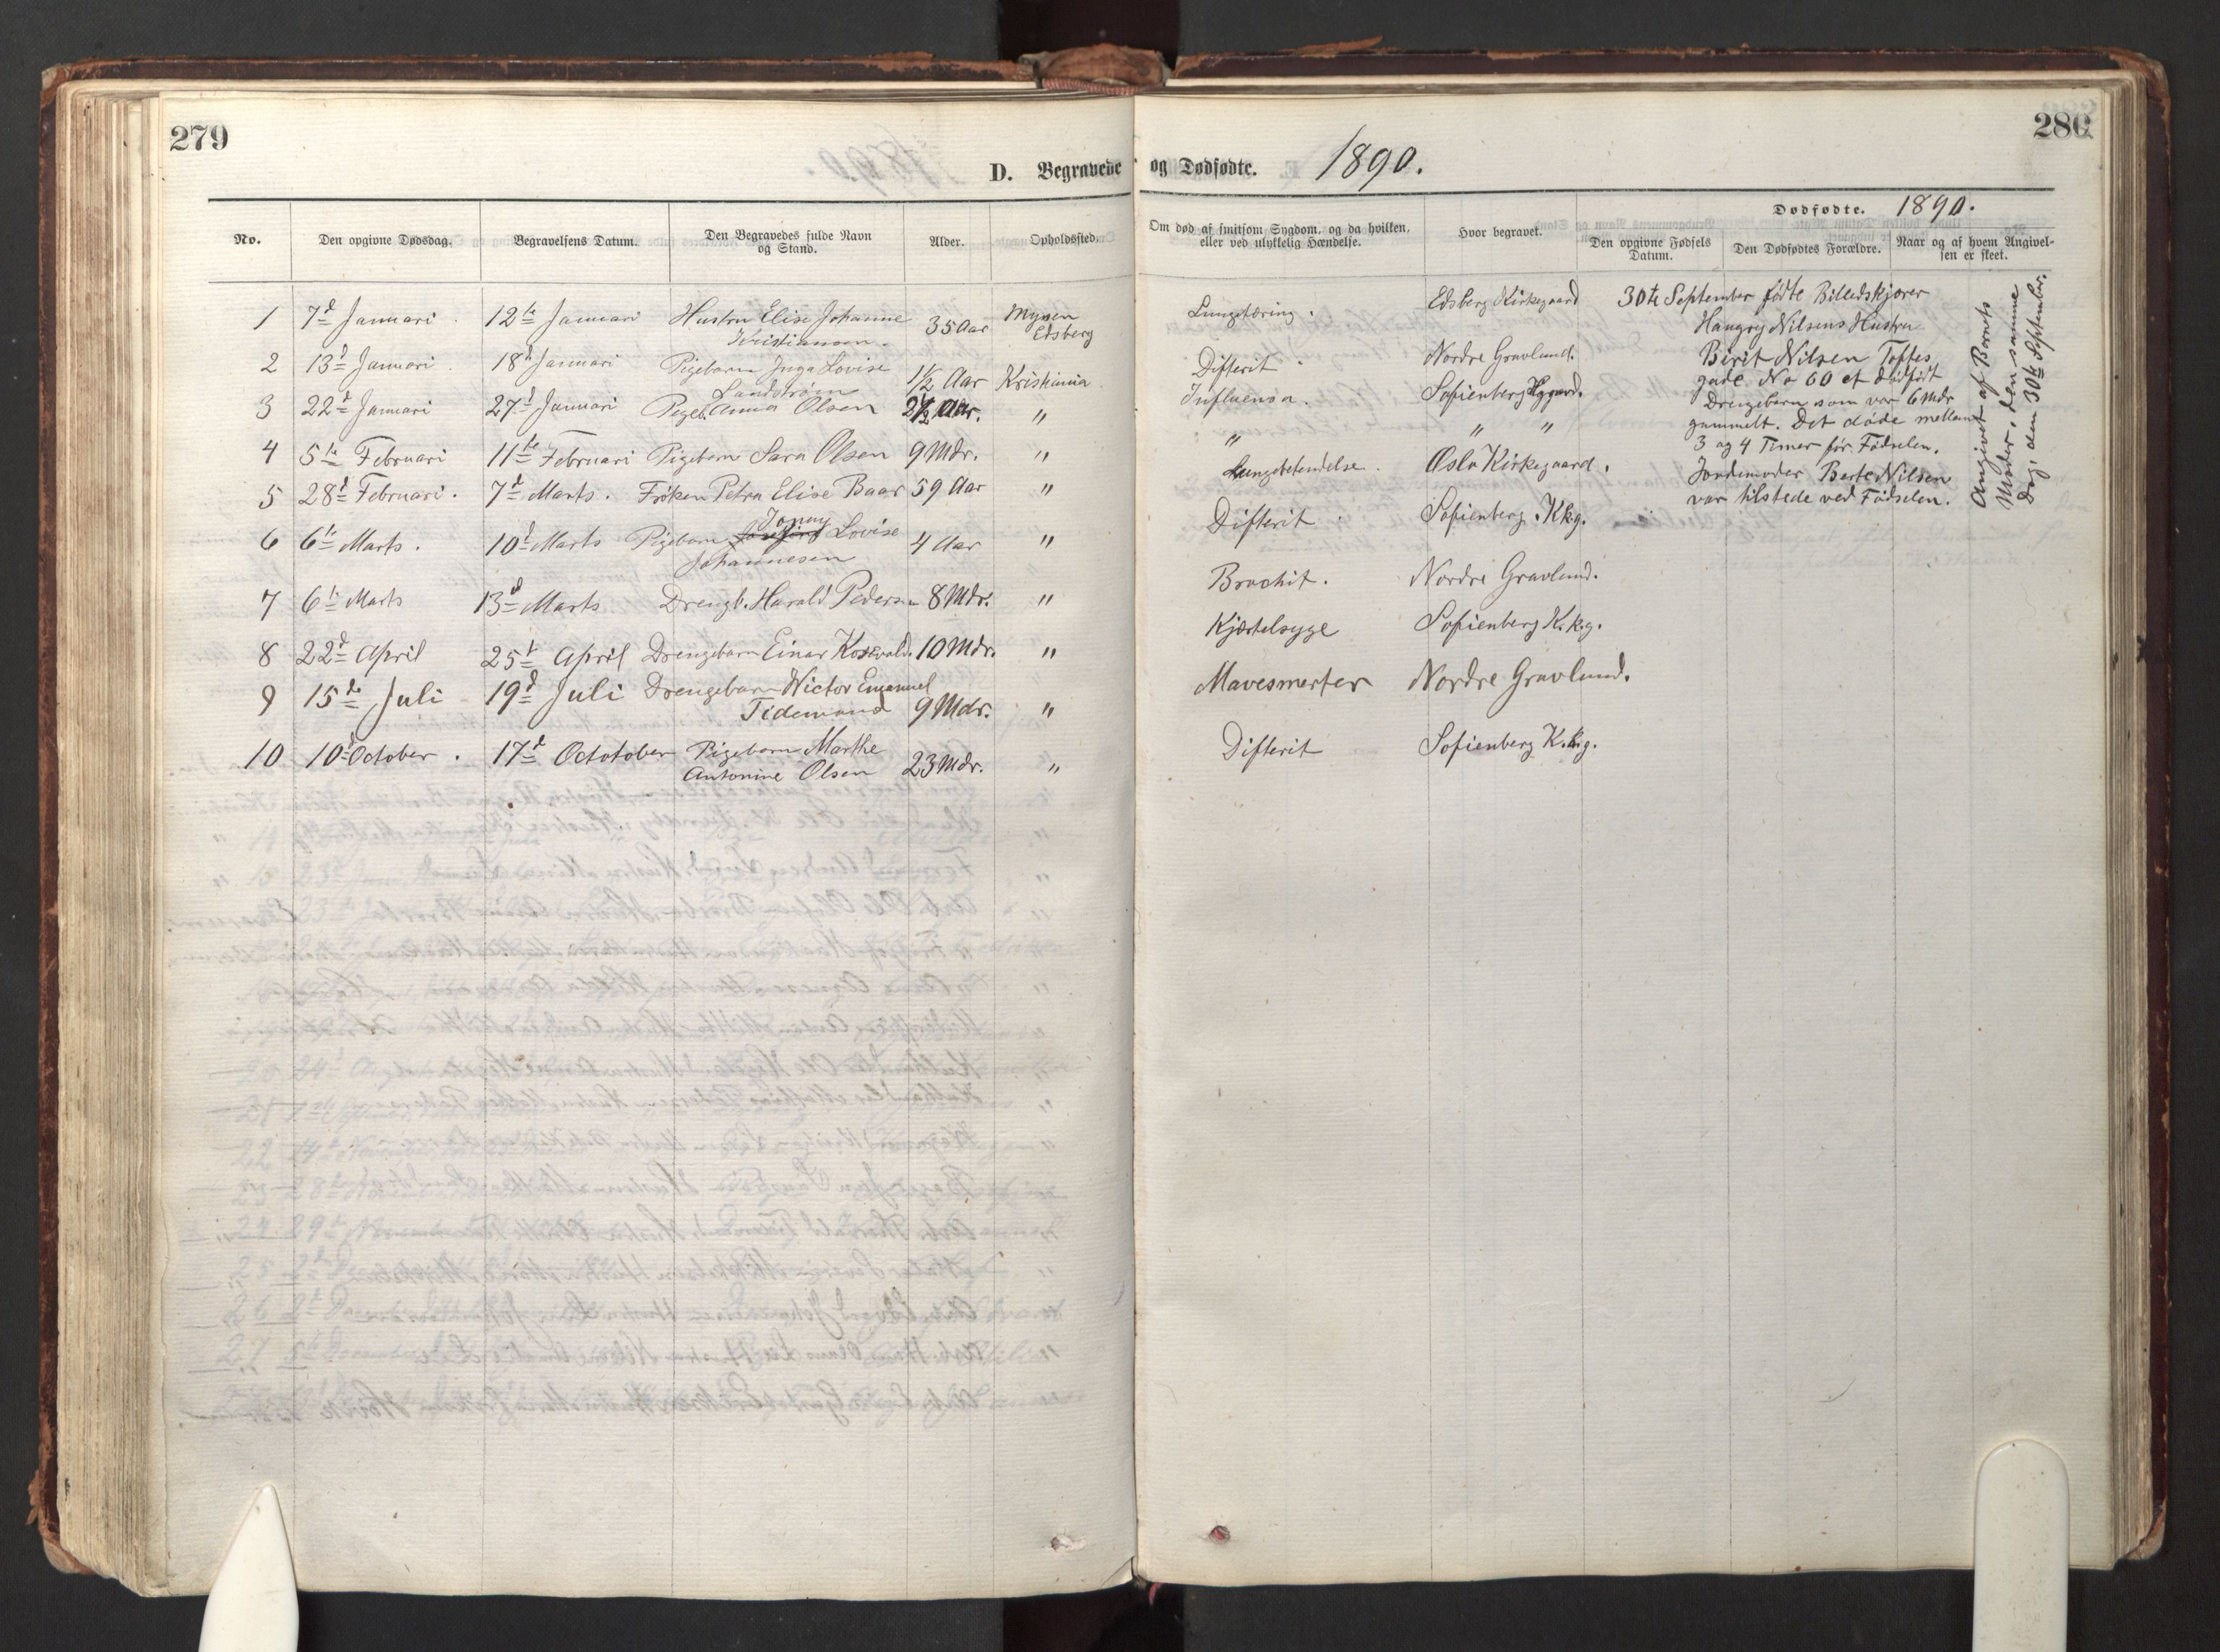 279
D. Begravede
No.
Den opgivne Dødsdag.
Begravelsens Datum.
Den Begravedes fulde Navn
og Stand.
Alder.
Opholdssted.
1 7d Januari 12te Januari Hustru Elise Johanne 35 Aar Mysen
Kristiansen. Edsberg
2 13d Januari 18d Januari Pigebarn Inga Lovise 1½ Aar Kristiania
Landstrøm
3 22d Januari 27d Januari Pigeb. Anna Olsen 2½ Aar. "
4 5te Februari 11te Februari Pigebarn Sara Olsen 9 Mdr. "
5 28d Februari. 7d Marts. Frøken Petra Elise Baar 59 Aar "
6 6te Marts. 10d Marts Pigebarn Lovise 4 Aar "
Johannesen
7 6te Marts 13d Marts Drengb. Harald Pedersen 8 Mdr. "
8 22d April 25t April Drengebarn Einar Kosevold. 10 Mdr. "
9 15de Juli 19d Juli Drengebarn Wictor Emanuel
Tidemand 9 Mdr. "
10 10d October. 17d Octotober Pigebarn Marthe
Antonine Olsen 23 Mdr. "
280
og Dødfødte. 1890.
Om død af smitsom Sygdom, og da hvilken,
eller ved ulykkelig Hændelse.
Hvor begravet.
Dødfødte. 1890.
Den opgivne Fødsels
Datum.
Den Dødfødtes Forældre.
Naar og af hvem Angivel-
sen er skeet.
Lungetæring. Edsberg Kirkegaard
Difterit Nordre Gravlund.
Influensa. Sofienberg Kggaard.
" " "
Lungebetendelse. Oslo Kirkegaard.
Difterit Sofienberg. Kkg.
Brochit. Nordre Gravlund.
Kjærtelsyge Sofienberg K.k.g.
Mavesmerter Nordre Gravlund.
Difterit Sofienberg K.k.g.
30te September fødte Billedskjærer
Haugry Nilsens Hustru
Birit Nilsen Toftes
gade No 60 et dødfødt
Drengebarn som var 6 Mdr
gammelt. Det døde mellem
3 og 4 Timer før Fødselen.
Jordemoder Berte Nilsen
var tilstede ved Fødselen.
Angivet af Barnets
Moder, den samme
Dag, den 30te September.